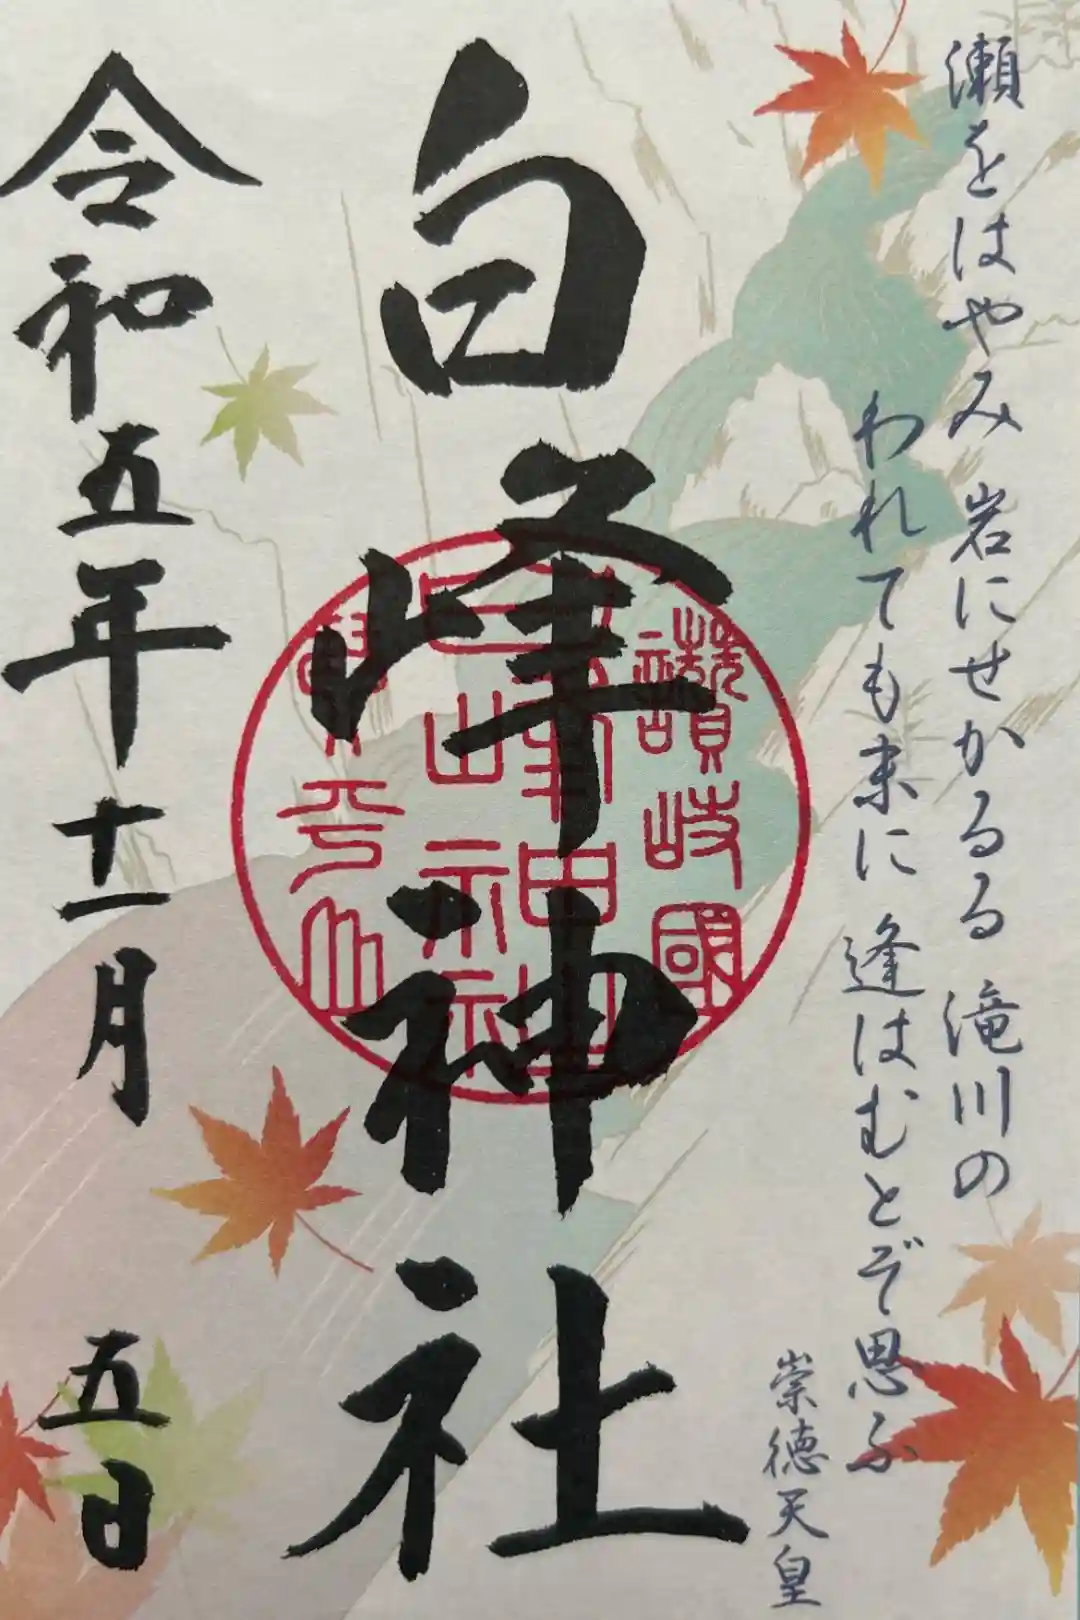 瀬をはやみ 岩にせかるる 滝川の
われても末に 逢はむとぞ思ふ
崇徳天皇
白峰神社
讃岐國
令和五年十一月 五日